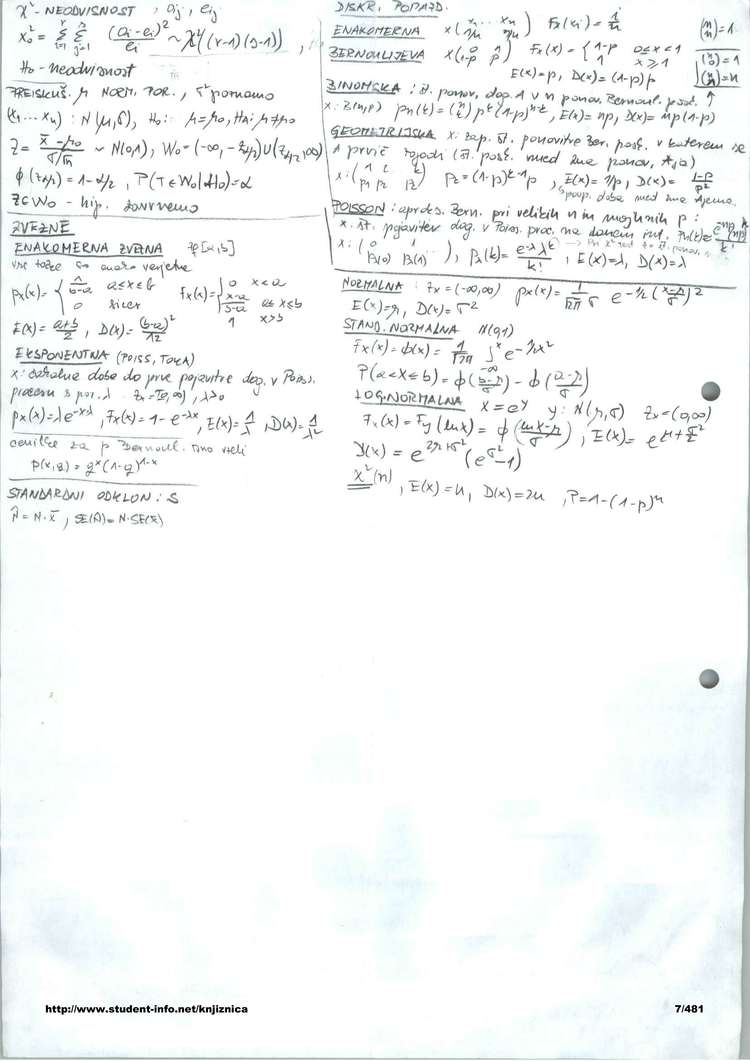 χ²-NEODVISNOST, oij, eij
χ0² = Σ(i=1, r) Σ(j=1, s) (oi-ei)²/ei ~ χ²((r-1)(s-1))
H0 - neodvisnost
PREISKUŠ. μ NORM. POR., σ² poznamo
(x1...xn): N(μ,σ), H0: μ=μ0, HA: μ≠μ0
Z = (x̄-μ0)/(σ/√n) ~ N(0,1), W0=(-∞,-zα/2)∪(zα/2,∞)
φ(zα/2)=1-α/2, P(T∈W0|H0)=α
z∈W0 - hip. zavrnemo
ZVEZNE
ENAKOMERNA ZVEZNA [a,b]
vse točke so enako verjetne
px(x) = { 1/(b-a) a≤x≤b; 0 sicer Fx(x) = { 0 x<a; (x-a)/(b-a) a≤x≤b; 1 x>b
E(x) = (a+b)/2, D(x) = (b-a)²/12
EKSPONENTNA (POISS, TOKA)
x: čakalna doba do prve pojavitve dog. v Poiss.
procesu s par. λ Zx=[0,∞), λ>0
px(x)=λe^-xλ, Fx(x)=1-e^-λx, E(x)=1/λ, D(x)=1/λ²
cenilke za p Bernoul.
p(x,q) = q^x (1-q)^1-x
STANDARDNI ODKLON: S
N·x̄, = N·SE(x̄)
DISKR. PORAZD.
ENAKOMERNA x(x1 ... xn / 1/n 1/n) Fx(xi) = i/n (n n)=1
BERNOULIJEVA x(0 1 / 1-p p) Fx(x) = { 1-p 0≤x<1; 1 x≥1 (n 0)=1
E(x)=p, D(x)=(1-p)p (n 1)=n
BINOMSKA: št. ponov. dog. A v n ponov. Bernoul. posk.
x: B(n,p) pn(k)=(n k) p^k (1-p)^n-k, E(x)=np, D(x)=np(1-p)
GEOMETRIJSKA x: zap. št. ponovitve Ber. posk. v katerem se
A prvič zgodi (št. posk. med dvema ponov. A)
x: (1 2 k / p1 p2 pk) pk=(1-p)^k-1 p, E(x)=1/p, D(x)=(1-p)/p²
povp. doba med dvema
POISSON: aproks. Bern. pri velikih n in majhnih p: pn(k)≈e^-np (np)^k/k!
x: št. pojavitev dog. v Poiss. proc. na danem int.
x: (0 1 / pλ(0) pλ(1)), pλ(k)=e^-λ λ^k/k!, E(x)=λ, D(x)=λ
NORMALNA: Zx=(-∞,∞) px(x)=1/(√2π σ) e^-1/2((x-μ)/σ)²
E(x)=μ, D(x)=σ²
STAND. NORMALNA N(0,1)
Fx(x)=φ(x)=1/√2π ∫(-∞, x) e^-1/2x²
P(a<X≤b) = φ((b-μ)/σ) - φ((a-μ)/σ)
LOG.NORMALNA X=e^y y: N(μ,σ) Zx=(0,∞)
Fx(x)=Fy(lnx)=φ((lnx-μ)/σ), E(x)=e^μ+σ²/2
D(x) = e^2μ+σ² (e^σ²-1)
χ²(n), E(x)=n, D(x)=2n, P=1-(1-p)^n
http://www.student-info.net/knjiznica 7/481